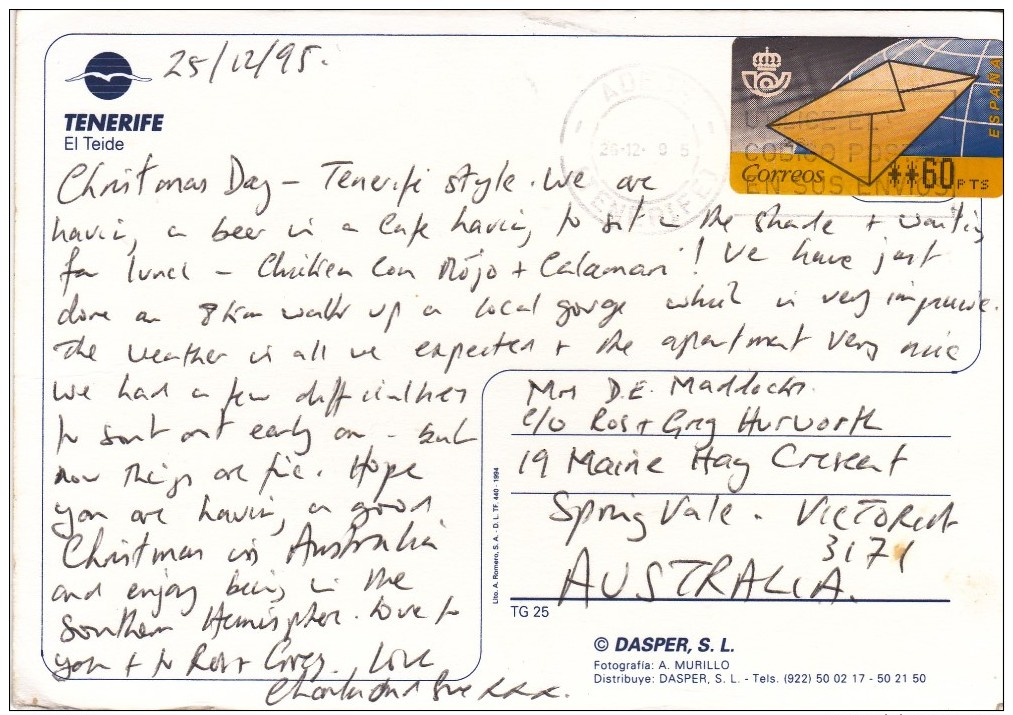 25/12/95.
TENERIFE
El Teide
ADEJE
26-12- 9 5
TENERIFE
CODIGO POST
EN SUS ENVIOS
ESPAÑA
Correos
**60 PTS
Christmas Day - Tenerife style. We are
having a beer in a Cafe having to sit in the shade + waiting
for lunch - Chicken Con Mojo + Calamari! We have just
done an 8km walk up a local gorge which is very impressive.
The weather is all we expected + the apartment very nice
We had a few difficulties
to sort out early on - but
now things are fine. Hope
you are having a good
Christmas in Australia
and enjoy being in the
Southern Hemisphere. Love to
you + to Ros + Greg. Love
Sue xxx.
Mrs D.E. Maddocks.
c/o Ros + Greg Hurworth
19 Maine Hay Crescent
Spring Vale - VICTORIA
3171
AUSTRALIA.
Lito. A. Romero, S. A. - D. L. TF. 440 - 1994
TG 25
© DASPER, S. L.
Fotografía: A. MURILLO
Distribuye: DASPER, S. L. - Tels. (922) 50 02 17 - 50 21 50